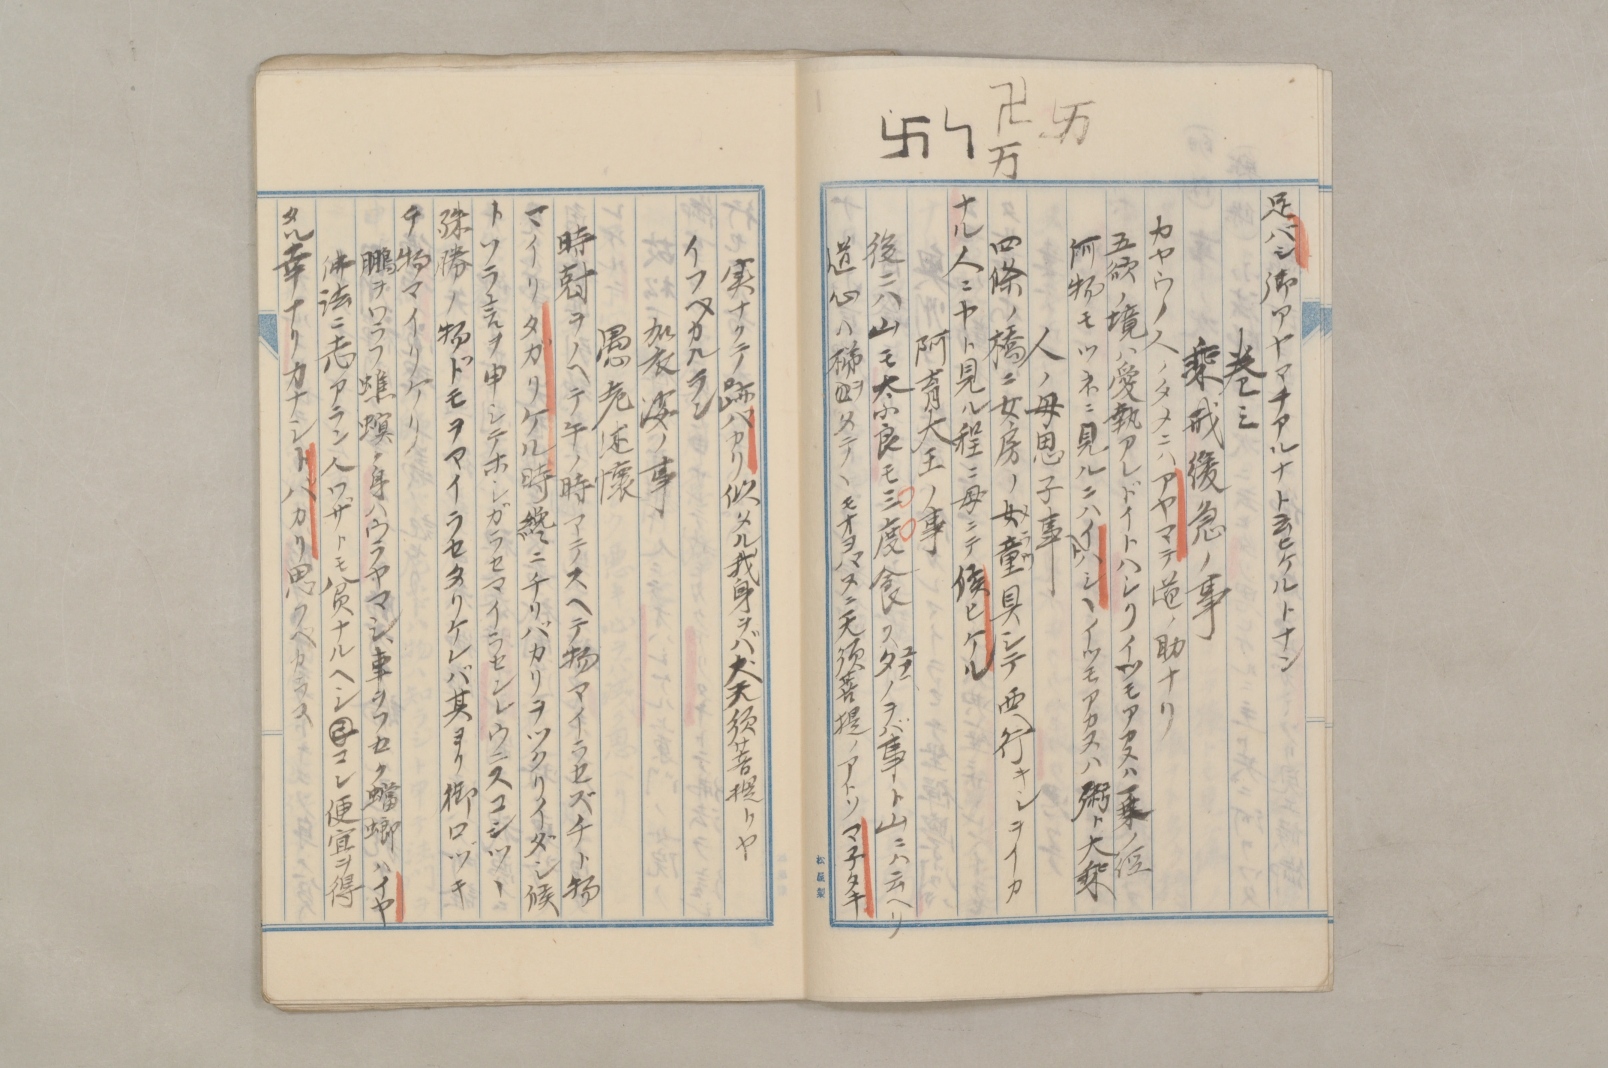 卐 卍 万 卐
足バシ御アヤマチアルナト云ヒケルトナン
巻三
乘戒緩急ノ事
カヤウノ人ノタメニハアヤマテ道ノ助ナリ
五欲ノ境ハ愛執アレドイトハシクイツモアカヌハ乗ノ位
何物モツネニ見ルニハイトハシーイツモアカヌハ粥ト大乘
人ノ母思子事
四條ノ橋ニ女房ノ女童具シテ西ヘ行キシヲイカ
ナル人ニヤト見ル程ニ母ニテ候ヒケル
阿育大王ノ事
後ニハ山モ奈良モ三度食ヲタノヲバ事ト山ニハ云ヘリ
道心ハ
実ナクテ跡バカリ似タル我身ヲバ犬天須菩提トヤ
イフベカルラン
袈裟ノ事
愚老述懷
時尅ヲノヘテ午ノ時マテスヘテ物マイラセズチト物
マイリタガリケル時繞ニチリバカリヲツクリイダシ候
トソラ言ヲ申シテホシガラセマイラセンレウニスコシツヽ
殊勝ノ物ドモヲマイラセタリケレバ其ヨリ御口ヅキ
テ物マイリケリ
鵬ヲワラフ蟭螟ノ身ハウラヤマシ、車ヲフセク蟷螂ハイヤ
佛法ニ志アラン人ワザトモ貧ナルヘシコレ便宜ヲ得
タル幸ナリカナシトバカリ思フベカラス
松屋製